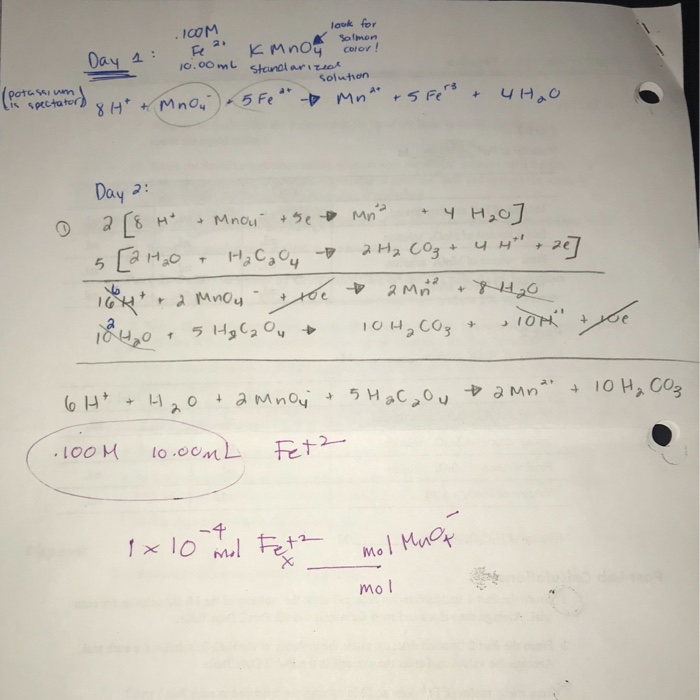 .100M look for
Day 1: Fe 2+ KMnO4 salmon color!
10.00mL standarized solution
(potassium is spectator) 8H+ + MnO4- + 5Fe2+ → Mn2+ + 5Fe+3 + 4H2O
Day 2:
① 2[8H+ + MnO4- + 5e → Mn+2 + 4H2O]
5[2H2O + H2C2O4 → 2H2CO3 + 4H+1 + 2e]
16H+ 6 + 2MnO4- + 10e → 2Mn+2 + 8H2O
10H2O 2 + 5H2C2O4 → 10H2CO3 + 10H+1 + 10e
6H+ + H2O + 2MnO4- + 5H2C2O4 → 2Mn2+ + 10H2CO3
.100M 10.00mL Fe+2
1 x 10-4 mol Fe+2 x mol MnO4-
mol